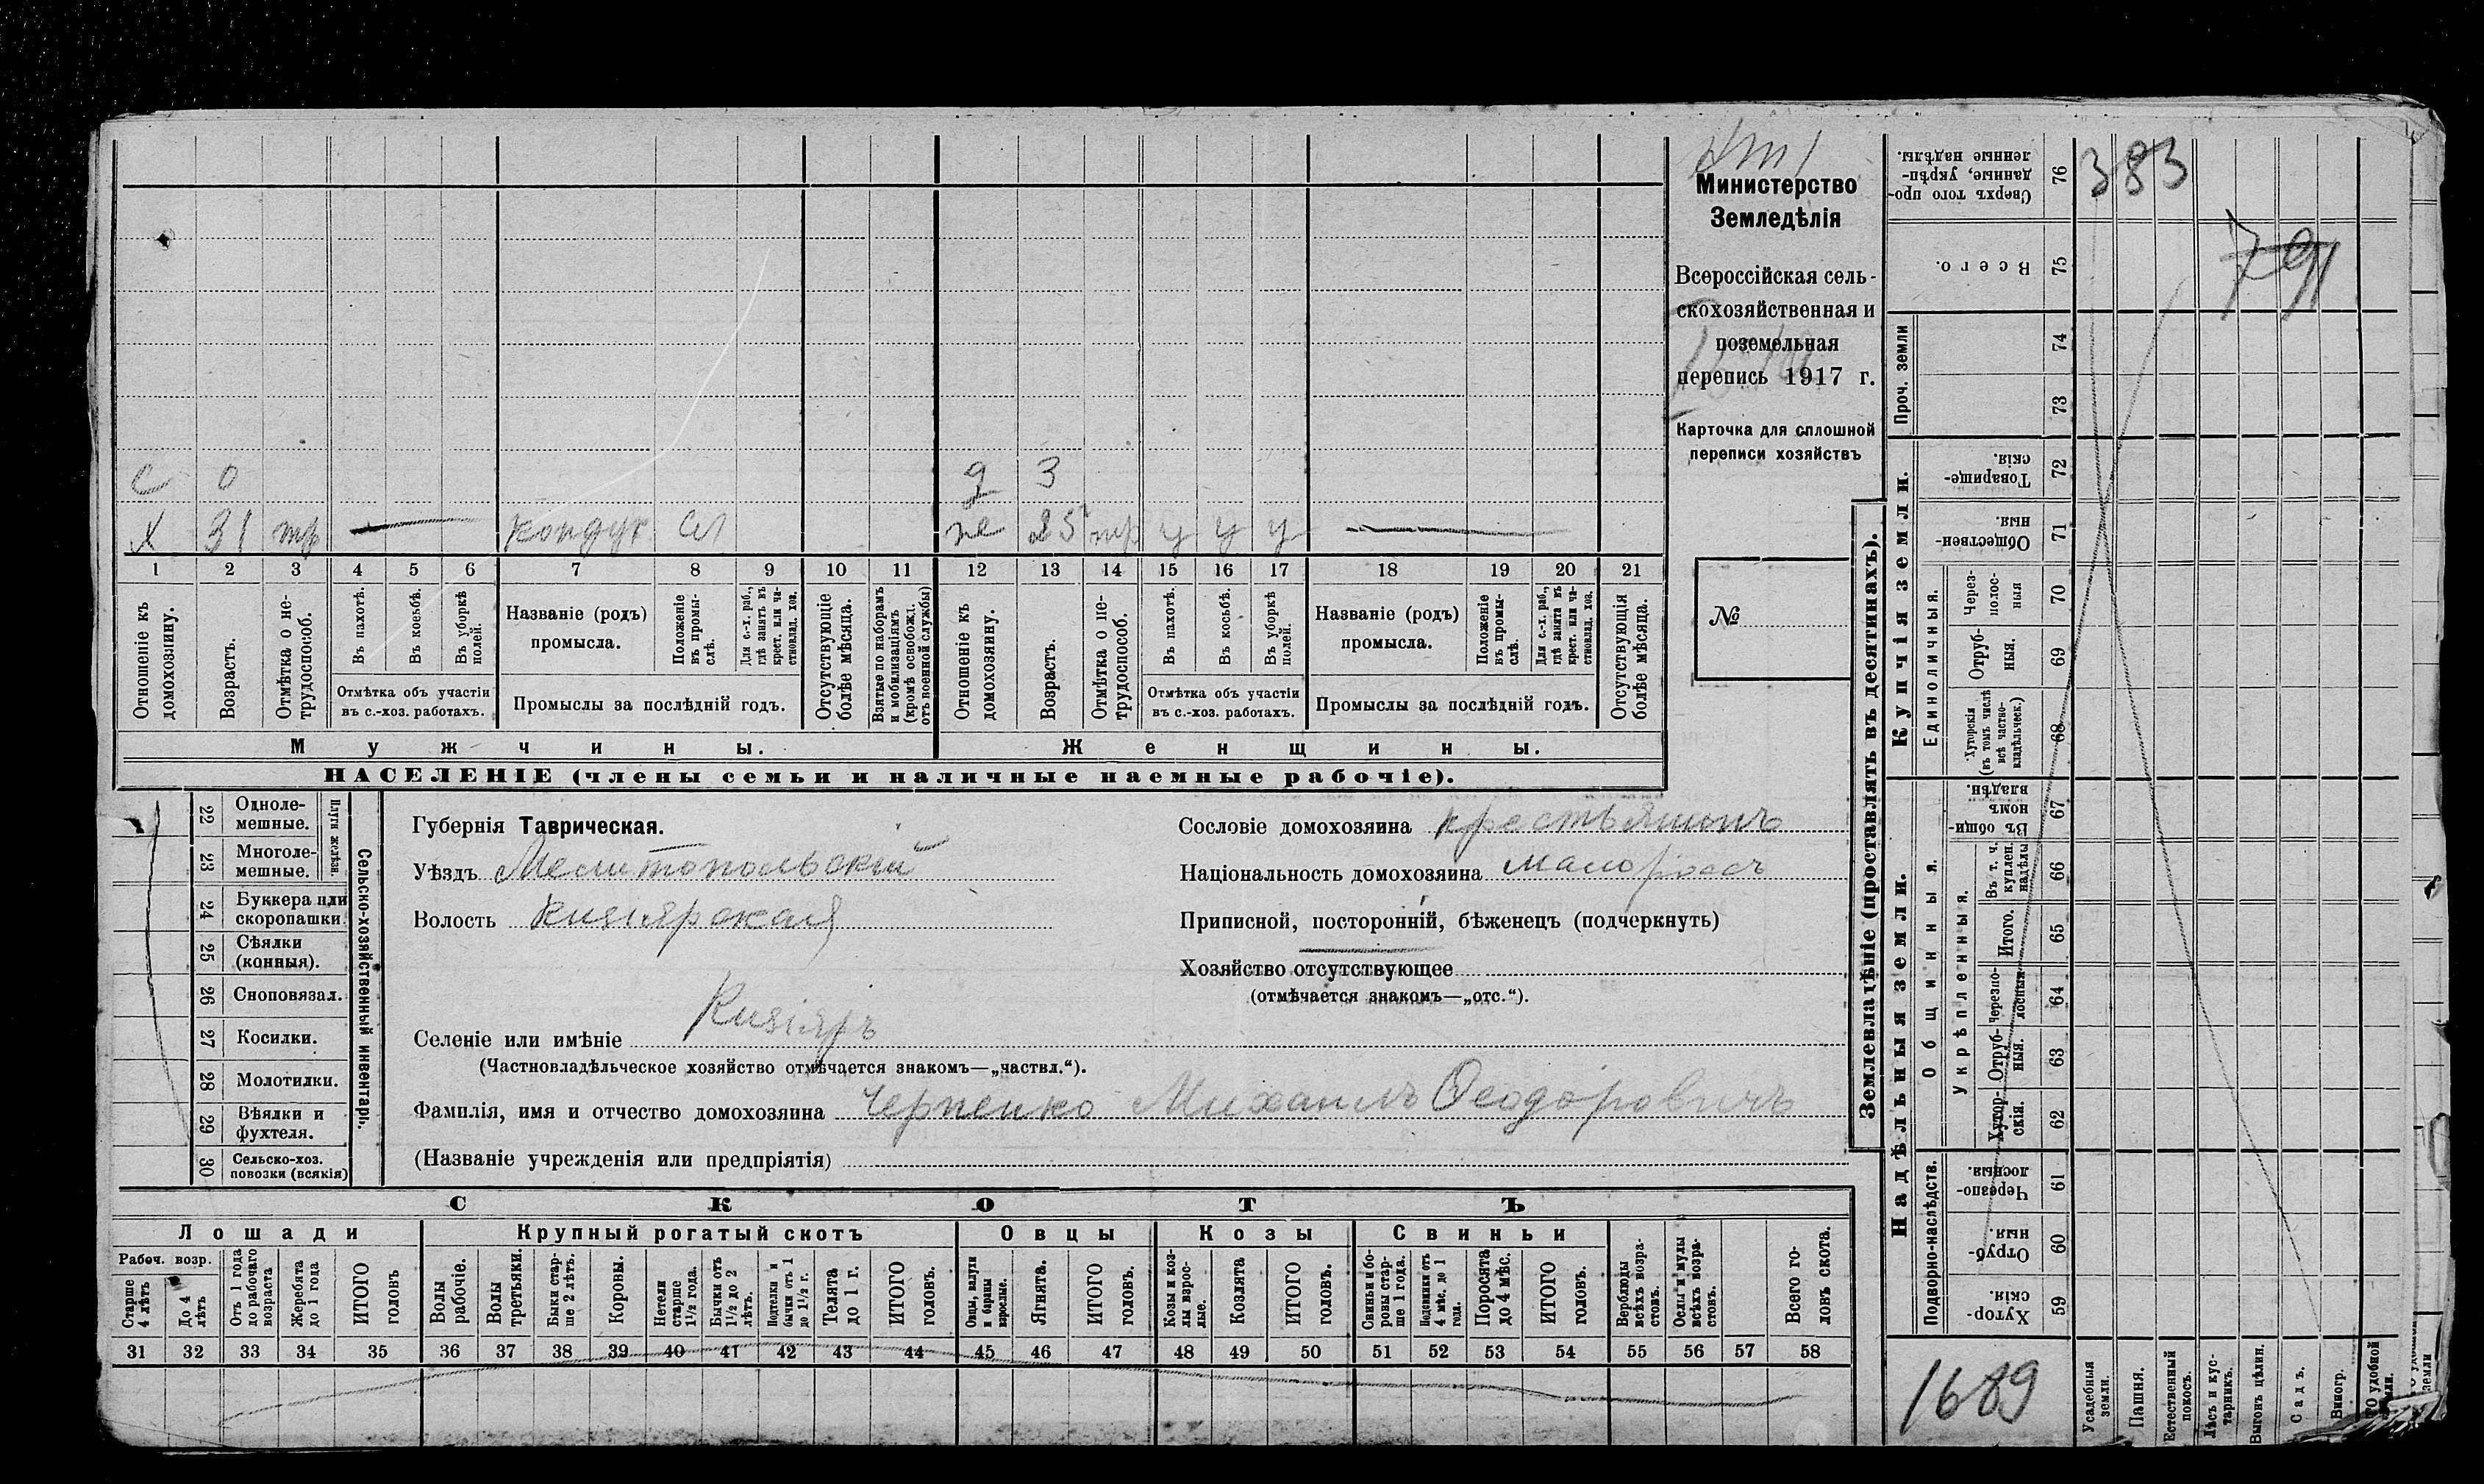 Министерство
Земледѣлія
Всероссійская сель-
скохозяйственная и
поземельная
перепись 1917 г.
Карточка для сплошной
переписи хозяйствъ
№
с 0 д 3
х 31 тр кондук сл же 25 тр у у у
1 2 3 4 5 6 7 8 9 10 11 12 13 14 15 16 17 18 19 20 21
Отношеніе къ домохозяину.
Возрастъ.
Отмѣтка о не-трудоспособ.
Въ пахотѣ.
Въ косьбѣ.
Въ уборкѣ полей.
Отмѣтка объ участіи
въ с.-хоз. работахъ.
Названіе (родъ)
промысла.
Положеніе въ промы-слѣ.
Для с.-х. раб., гдѣ занятъ въ крест. или ча-стновлад. хоз.
Промыслы за послѣдній годъ.
Отсутствующіе болѣе мѣсяца.
Взятые по наборамъ и мобилизаціямъ (кромѣ освобожд. отъ военной службы)
Отношеніе къ домохозяину.
Возрастъ.
Отмѣтка о не-трудоспособ.
Въ пахотѣ.
Въ косьбѣ.
Въ уборкѣ полей.
Отмѣтка объ участіи
въ с.-хоз. работахъ.
Названіе (родъ)
промысла.
Положеніе въ промы-слѣ.
Для с.-х. раб., гдѣ занята въ крест. или ча-стновлад. хоз.
Промыслы за послѣдній годъ.
Отсутствующія болѣе мѣсяца.
Мужчины. Женщины.
НАСЕЛЕНІЕ (члены семьи и наличные наемные рабочіе).
Сельско-хозяйственный инвентарь.
Плуги желѣзн.
22 Одноле-мешные.
23 Многоле-мешные.
24 Буккера или скоропашки
25 Сѣялки (конныя).
26 Сноповязал.
27 Косилки.
28 Молотилки.
29 Вѣялки и фухтеля.
30 Сельско-хоз. повозки (всякія)
Губернія Таврическая.
Уѣздъ Мелитопольскій
Волость Кизіярская
Селеніе или имѣніе Кизіяръ
(Частновладѣльческое хозяйство отмѣчается знакомъ—„частвл.“).
Сословіе домохозяина крестьянинъ
Національность домохозяина малоросъ
Приписной, посторонній, бѣженецъ (подчеркнуть)
Хозяйство отсутствующее
(отмѣчается знакомъ—„отс.“).
Фамилія, имя и отчество домохозяина Черненко Михаилъ Ѳеодоровичъ
(Названіе учрежденія или предпріятія)
СКОТЪ
Лошади Крупный рогатый скотъ Овцы Козы Свиньи
Рабоч. возр.
Старше 4 лѣтъ
До 4 лѣтъ
Отъ 1 года до рабочаго возраста
Жеребята до 1 года
ИТОГО головъ
Волы рабочіе.
Волы третьяки.
Быки стар-ше 2 лѣтъ.
Коровы.
Нетели старше 1½ года.
Бычки отъ 1½ до 2 лѣтъ.
Подтелки и бычки отъ 1 до 1½ г.
Телята до 1 г.
ИТОГО головъ.
Овцы, валухи и бараны взрослые.
Ягнята.
ИТОГО головъ.
Козы и коз-лы взрос-лые.
Козлята
ИТОГО головъ.
Свиньи и бо-ровы стар-ше 1 года.
Подсвинки отъ 4 мѣс. до 1 года.
Поросята до 4 мѣс.
ИТОГО головъ.
Верблюды всѣхъ возра-стовъ.
Ослы и мулы всѣхъ возра-стовъ.
Всего го-ловъ скота.
31 32 33 34 35 36 37 38 39 40 41 42 43 44 45 46 47 48 49 50 51 52 53 54 55 56 57 58
Землевладѣніе (проставлять въ десятинахъ).
Сверхъ того про-данные, укрѣп-ленные надѣлы. 76
383
Всего. 75
791
Проч. земли 74 73
Купчія земли.
Товарище-скія. 72
Обществен-ныя. 71
Единоличныя.
Через-полос-ныя 70
Отруб-ныя. 69
Хуторскія (въ томъ числѣ всѣ частно-владѣльческ.) 68
Надѣльныя земли.
Общинныя.
Въ общин-номъ владѣн. 67
Укрѣпленныя.
Въ т. ч. куплен. надѣлы 66
Итого. 65
Черезпо-лосныя 64
Отруб-ныя. 63
Хутор-скія. 62
Подворно-наслѣдств.
Черезпо-лосныя. 61
Отруб-ныя. 60
Хутор-скія. 59
1689
Усадебныя земли.
Пашня.
Естественный покосъ.
Лѣсъ и кус-тарникъ.
Выгонъ цѣлин.
Садъ.
Виногр.